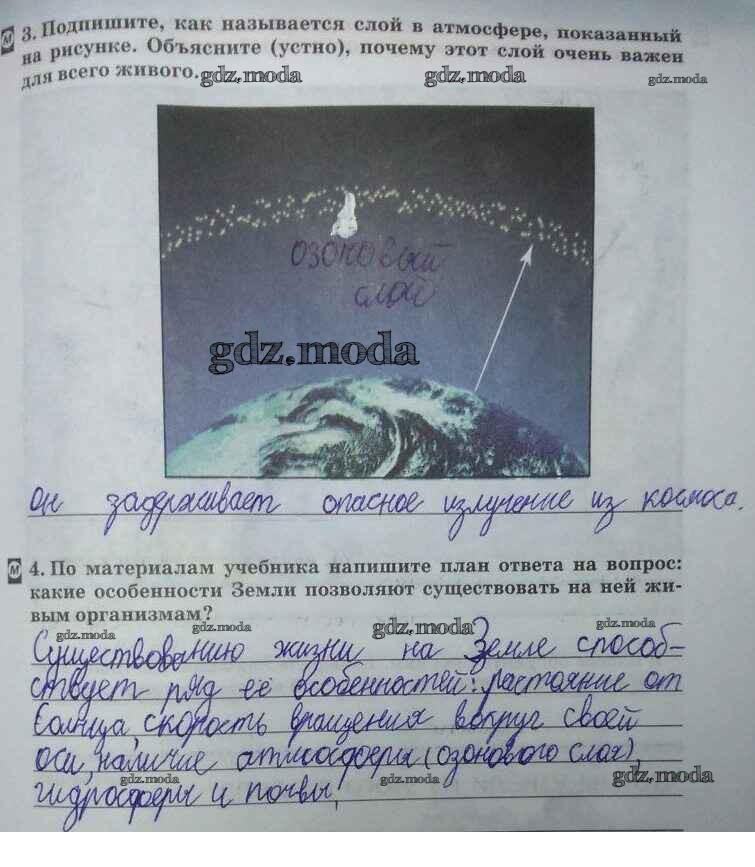 М 3. Подпишите, как называется слой в атмосфере, показанный
на рисунке. Объясните (устно), почему этот слой очень важен
для всего живого.
gdz.moda gdz.moda gdz.moda
озоновый
слой
gdz.moda
Он задерживает опасное излучение из космоса.
М 4. По материалам учебника напишите план ответа на вопрос:
какие особенности Земли позволяют существовать на ней жи-
вым организмам?
gdz.moda gdz.moda gdz.moda gdz.moda
Существованию жизни на Земле способ-
ствует ряд её особенностей: расстояние от
Солнца, скорость вращения вокруг своей
оси, наличие атмосферы (озонового слоя),
gdz.moda gdz.moda gdz.moda gdz.moda
гидросферы и почвы.